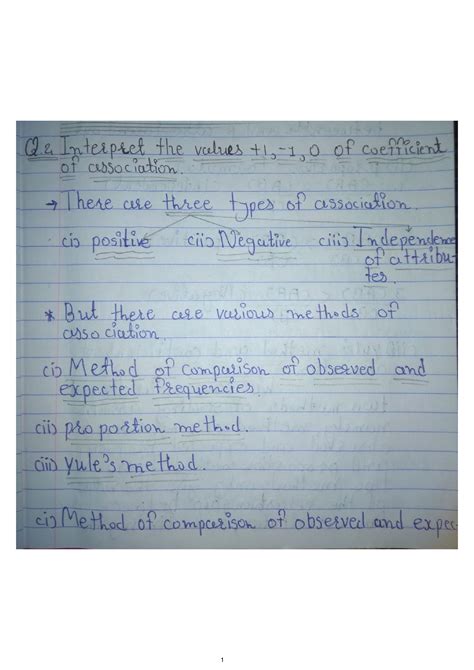 Q.2. Interpret the values +1, -1, 0 of coefficient
of association.
→ There are three types of association.
(i) positive (ii) Negative (iii) Independence
of attribu-
tes.
* But there are various methods of
association.
(i) Method of comparison of observed and
expected frequencies.
(ii) proportion method.
(iii) Yule's method.
(i) Method of comparison of observed and expec
1